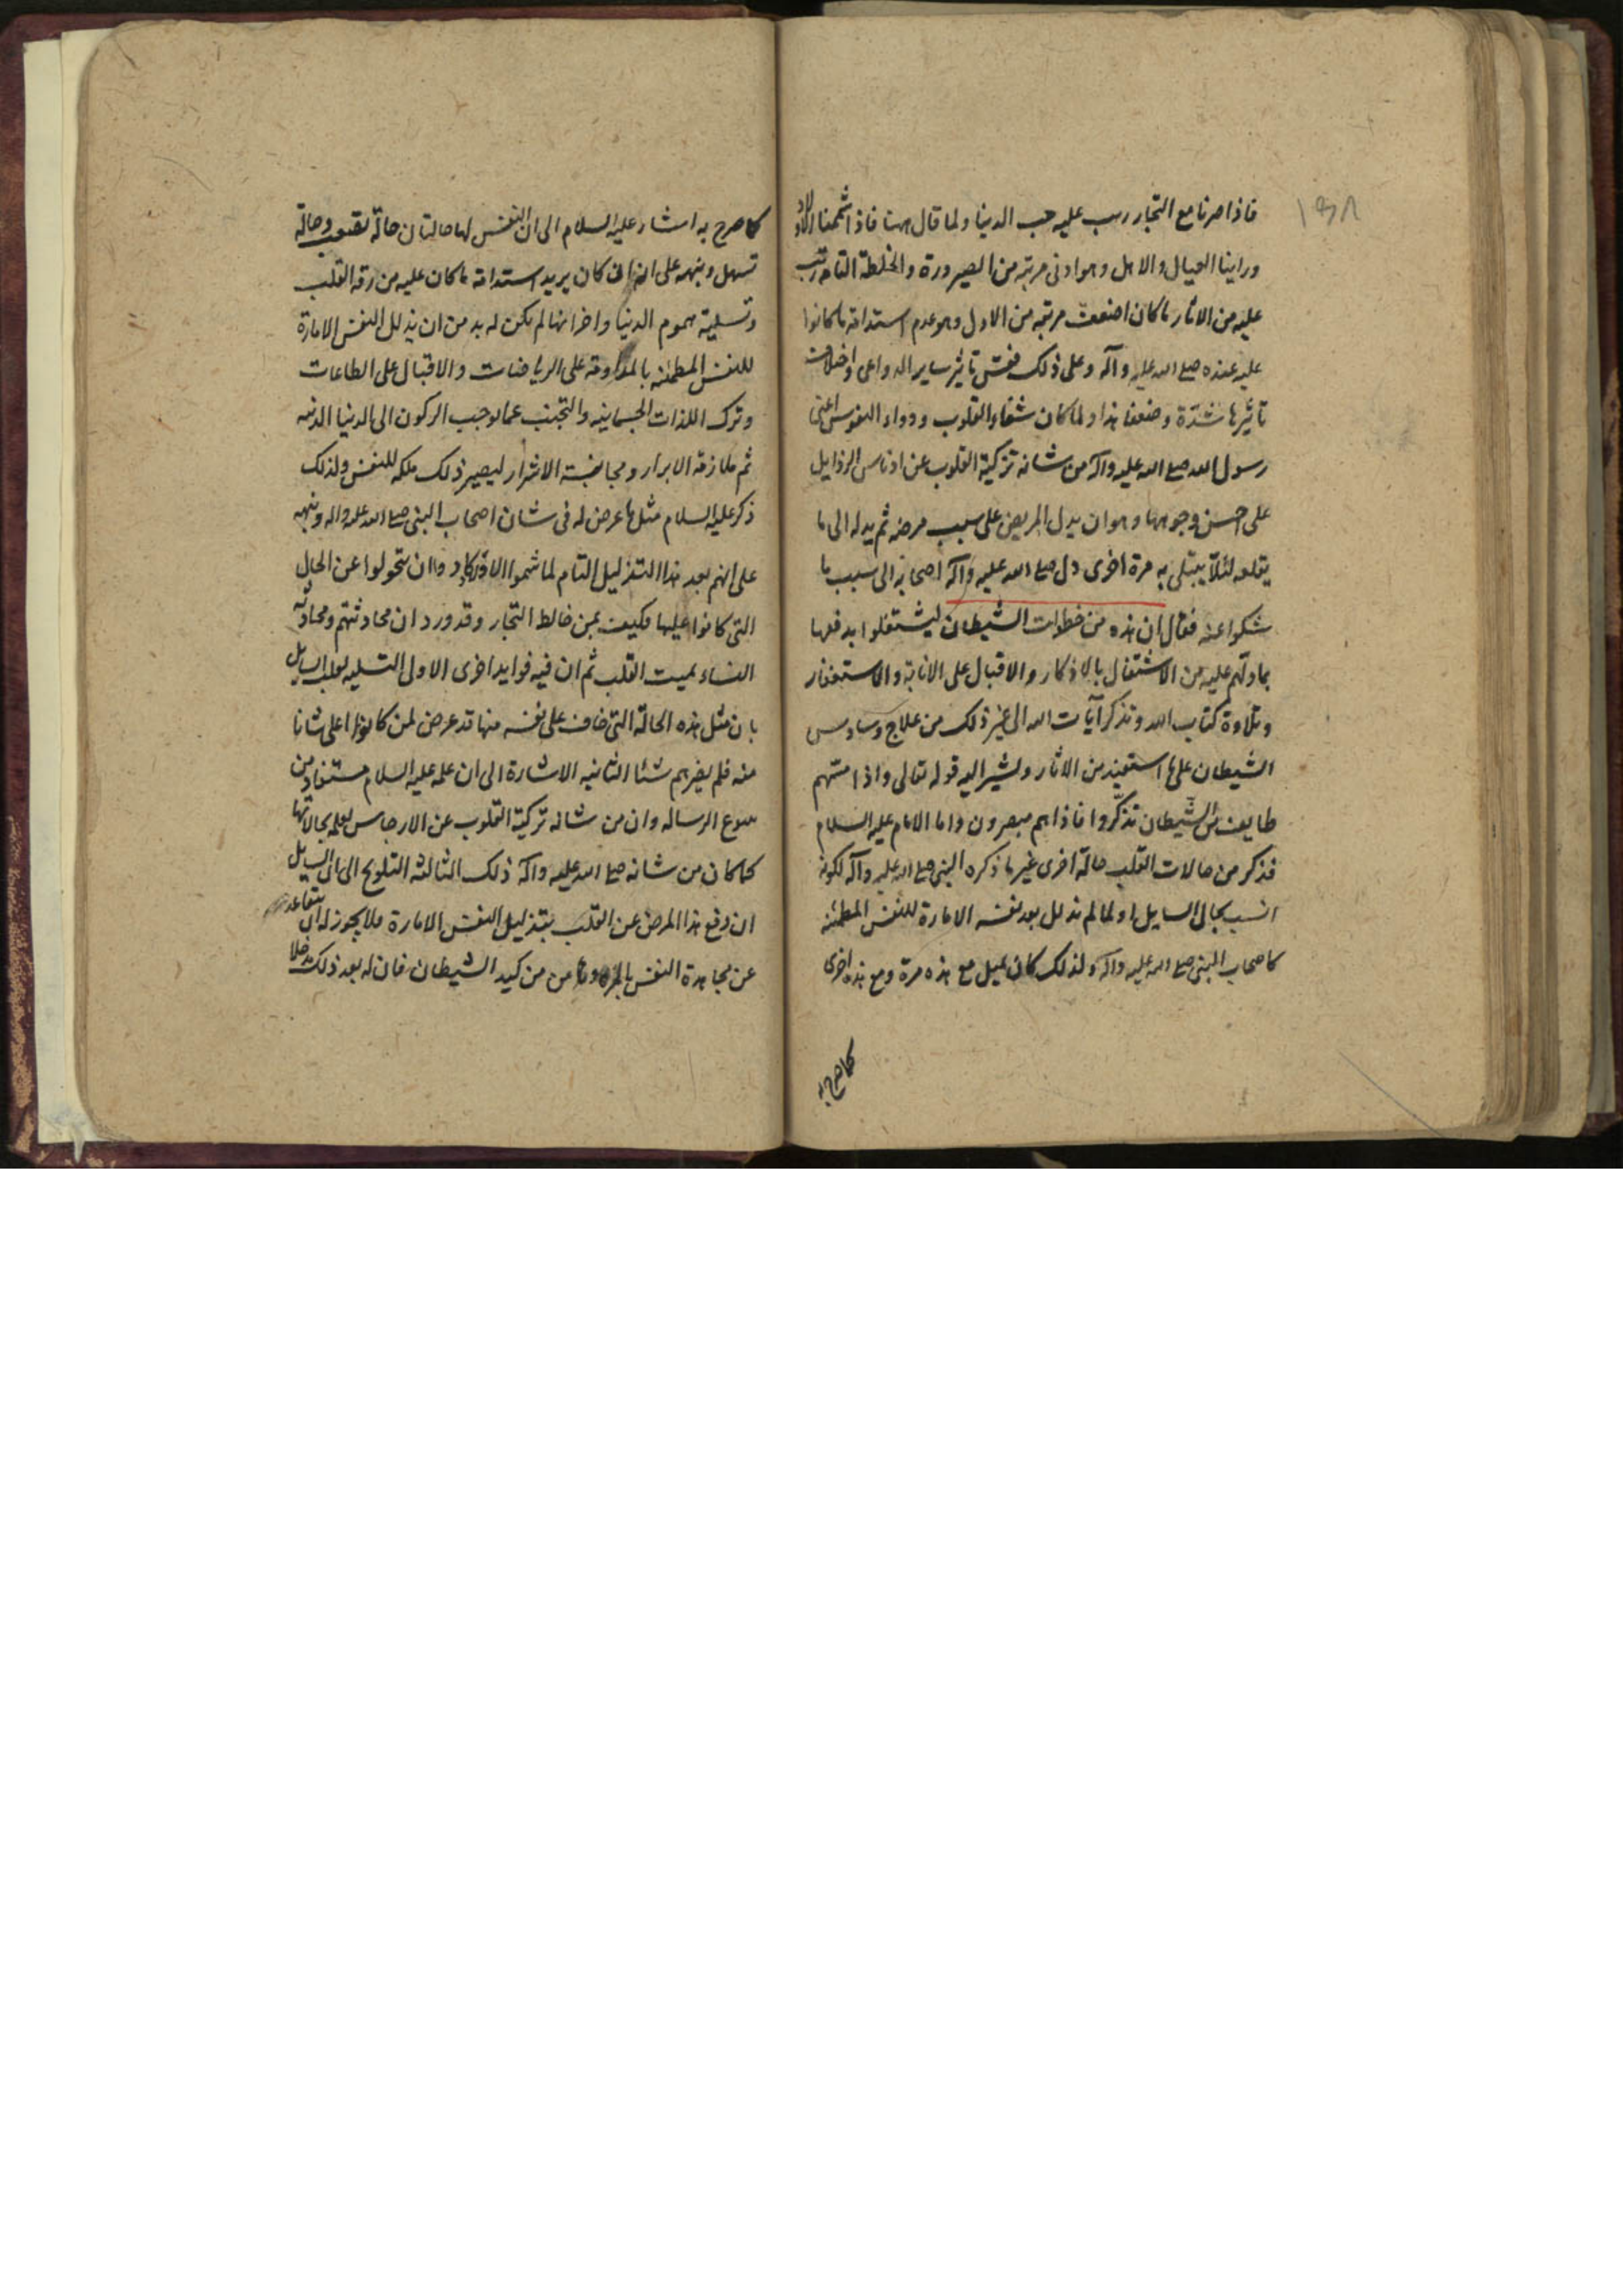 ١٣٨
فاذا صرنا مع التجار رتب عليه حب الدنيا ولما قال ههنا فاذا شممنا الاولاد
وراينا العيال والاهل وهو ادنى مرتبة من الصيرورة والخلطة التامة رتب
عليه من الاثار ما كان اضعف مرتبة من الاول وهو عدم استدامة ما كانوا
عليه عنده صلى الله عليه وآله وعلى ذلك فقس تاثير ساير الدواعى واختلاف
تاثيرها شدّة وضعفا هذا ولما كان شفاء القلوب ودواء النفوس اعنى
رسول الله صلى الله عليه وآله من شانه تزكية القلوب عن ادناس الرذايل
على احسن وجوهها وهو ان يدل المريض على سبب مرضه ثم يدله الى ما
يقلعه لئلا يبتلى به مرة اخرى دل صلى الله عليه وآله اصحابه الى سبب ما
شكوا عنه فقال ان هذه من خطوات الشيطان ليشتغلوا بدفعها
بما دلهم عليه من الاشتغال بالاذكار والاقبال على الانابة والاستغفار
وتلاوة كتاب الله وتذكر آيات الله الى غير ذلك من علاج وساوس
الشيطان على ما استفيد من الاثار ويشير اليه قوله تعالى واذا مسّهم
طايف من الشّيطان تذكّروا فاذا هم مبصرون واما الامام عليه السلام
فذكر من حالات القلب حالة اخرى غير ما ذكره النبى صلى الله عليه وآله لكونه
انسب بحال السايل او لما لم تذلل بعد نفسه الامارة للنفس المطمئنه
كاصحاب النبى صلى الله عليه وآله ولذلك كان يميل مع هذه مرة ومع هذه اخرى
كما صرح به
كما صرح به اشار عليه السلام الى ان النفس لها حالتان حالة تصعب وحالة
تسهل ونبهه على انه ان كان يريد استدامة ما كان عليه من رقة القلب
وتسلية هموم الدنيا واحزانها لم يكن له بد من ان يذلل النفس الامارة
للنفس المطمئنه بالمداومة على الرياضات والاقبال على الطاعات
وترك اللذات الجسمانيه والتجنب عما يوجب الركون الى الدنيا الدنيه
ثم ملازمة الابرار ومجانبة الاشرار ليصير ذلك ملكه للنفس ولذلك
ذكر عليه السلام مثل ما عرض له فى شان اصحاب النبى صلى الله عليه واله ونبهه
على انهم بعد هذا التذليل التام لما شموا الاولاد كادوا ان يتحولوا عن الحال
التى كانوا عليها فكيف بمن خالط التجار وقد ورد ان محادثتهم ومحادثة
النساء يميت القلب ثم ان فيه فوايد اخرى الاولى التسليه لقلب السايل
بان مثل هذه الحالة التى خاف على نفسه منها قد عرض لمن كانوا اعلى شانا
منه فلم يضرهم شئا الثانيه الاشارة الى ان علمه عليه السلام مستفاد من
ينبوع الرساله وان من شانه تزكية القلوب عن الارجاس لعلمه بحالاتها
كما كان من شانه صلى الله عليه وآله ذلك الثالثه التلويح الى السايل
ان دفع هذا المرض عن القلب بتذليل النفس الامارة فلا يجوز له ان يتقاعد
عن مجاهدة النفس من كيد الشيطان فان له بعد ذلك مدخلا